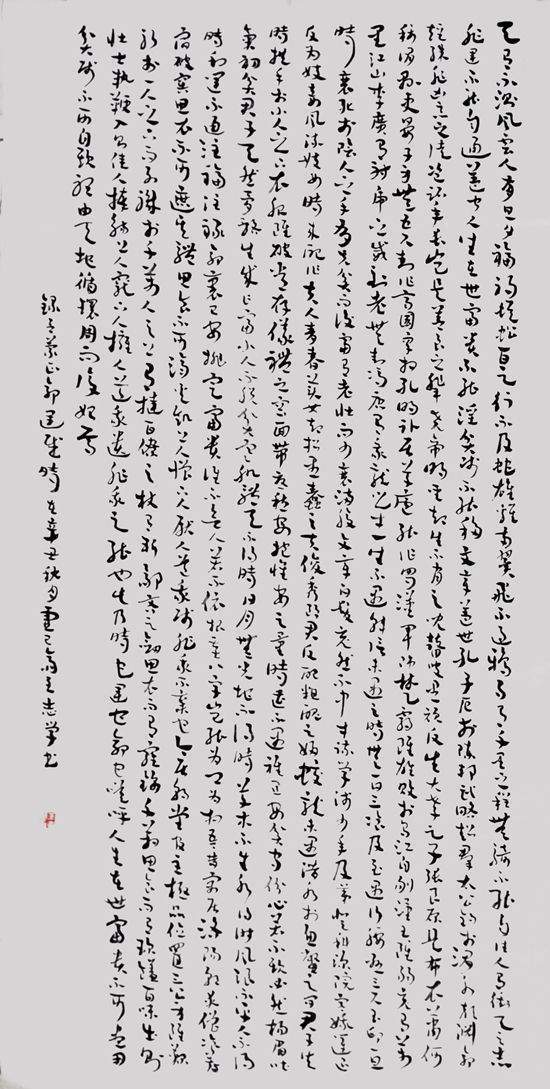 天有不测风云人有旦夕祸福蜈蚣百足行不及蛇雄鸡两翼飞不过鸦马有千里之程无骑不能自往人有衝天之志
非運不能自通盖闻人生在世富贵不能淫贫贱不能移文章盖世孔子厄於陈邦武略超群太公钓於渭水颜渊命
短殊非凶恶之徒盗跖年长岂是善良之辈尧帝明圣却生不肖之儿瞽叟愚顽反生大孝之子张良原是布衣萧何
称谓县吏晏子身无五尺封作齐国宰相孔明卧居草庐能作蜀汉军师楚霸虽雄败於乌江自刎汉王虽弱竟有万
里江山李广有射虎之威到老无封冯唐有乘龙之才一生不遇韩信未遇之时无一日三餐及至遇行腰悬三尺玉印一旦
时衰死於阴人之手有先贫而后富有老壮而少衰满腹文章白发竟然不中才疏学浅少年及第登科深院宫娥運退
反为妓妾风流妓女时来配作夫人青春美女却招愚蠢之夫俊秀郎君反配粗醜之妇蛟龙未遇潜水於鱼鳖之间君子失
时拱手於小人之下衣服虽破常存仪礼之容面带忧愁每抱怀安之量时遭不遇只宜安贫守份心若不欺必然扬眉吐
气初贫君子天然骨骼生成乍富小人不脱贫寒肌体天不得时日月无光地不得时草木不生水不得时风浪不平人不得
时利運不通注福注禄命里已安排定富贵谁不欲人若不依根基八字岂能为卿为相吾昔寓居洛阳朝求僧餐暮
宿破窑思衣不可遮其体思食不可济其饥上人憎下人厌人道我贱非我不弃也今居朝堂官至极品位置三公身虽鞠
躬於一人之下而列职於千万人之上有挞百僚之杖有斩鄙吝之剑思衣而有罗锦千箱思食而有珍馐百味出则
壮士执鞭入则佳人捧觞上人宠下人拥人道我贵非我之能也此乃时也運也命也嗟呼人生在世富贵不可尽用
贫贱不可自欺听由天地循环周而复始焉
录吕蒙正命運赋时在辛丑秋月志学书